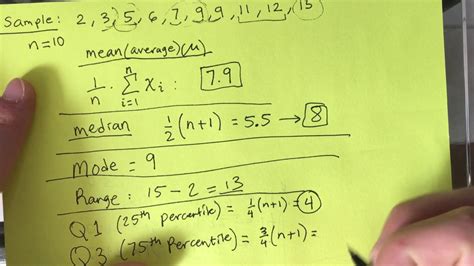 Sample: 2, 3, 5, 6, 7, 9, 9, 11, 12, 15
n=10
mean(average)(μ)
1/n · Σ_{i=1}^{n} xᵢ : 7.9
median 1/2(n+1) = 5.5 → 8
Mode = 9
Range: 15 - 2 = 13
Q1 (25th percentile) = 1/4(n+1) = 4
Q3 (75th percentile) = 3/4(n+1) =